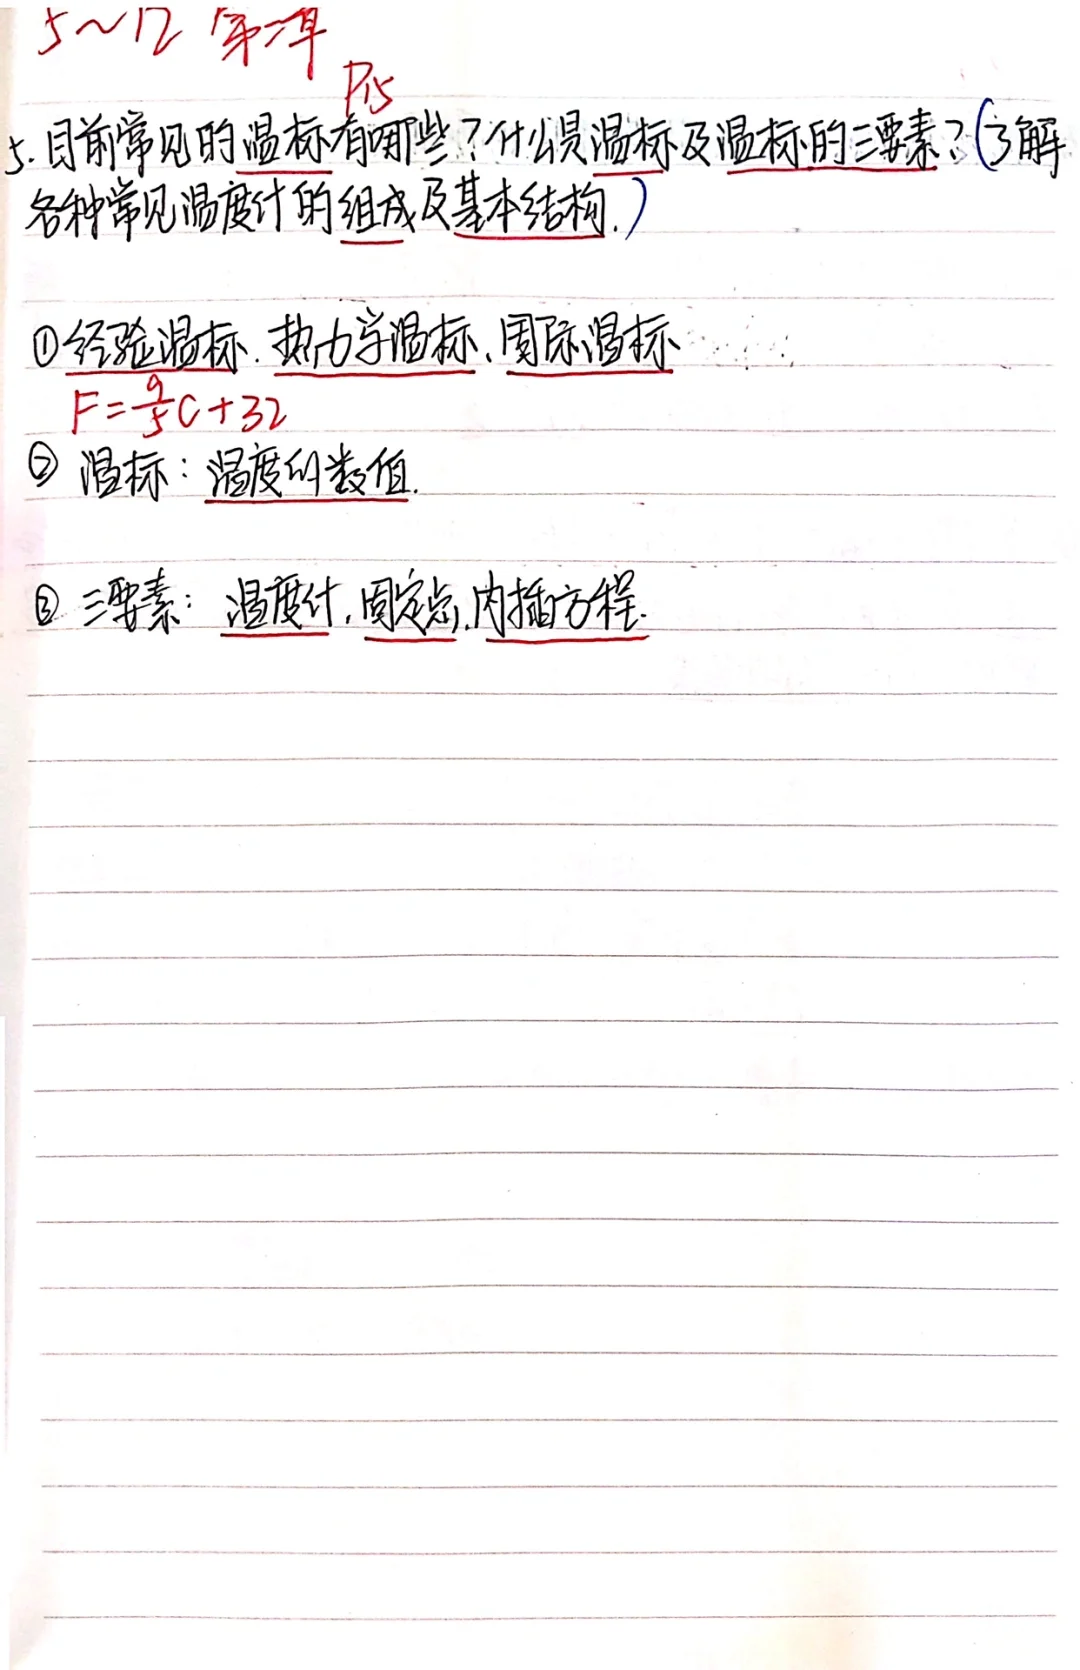 5~12 第二章
P15
5.目前常见的温标有哪些？什么是温标及温标的三要素？(了解
各种常见温度计的组成及基本结构.)
①经验温标.热力学温标、国际温标
F=9/5C+32
② 温标：温度的数值.
③ 三要素：温度计.固定点.内插方程.